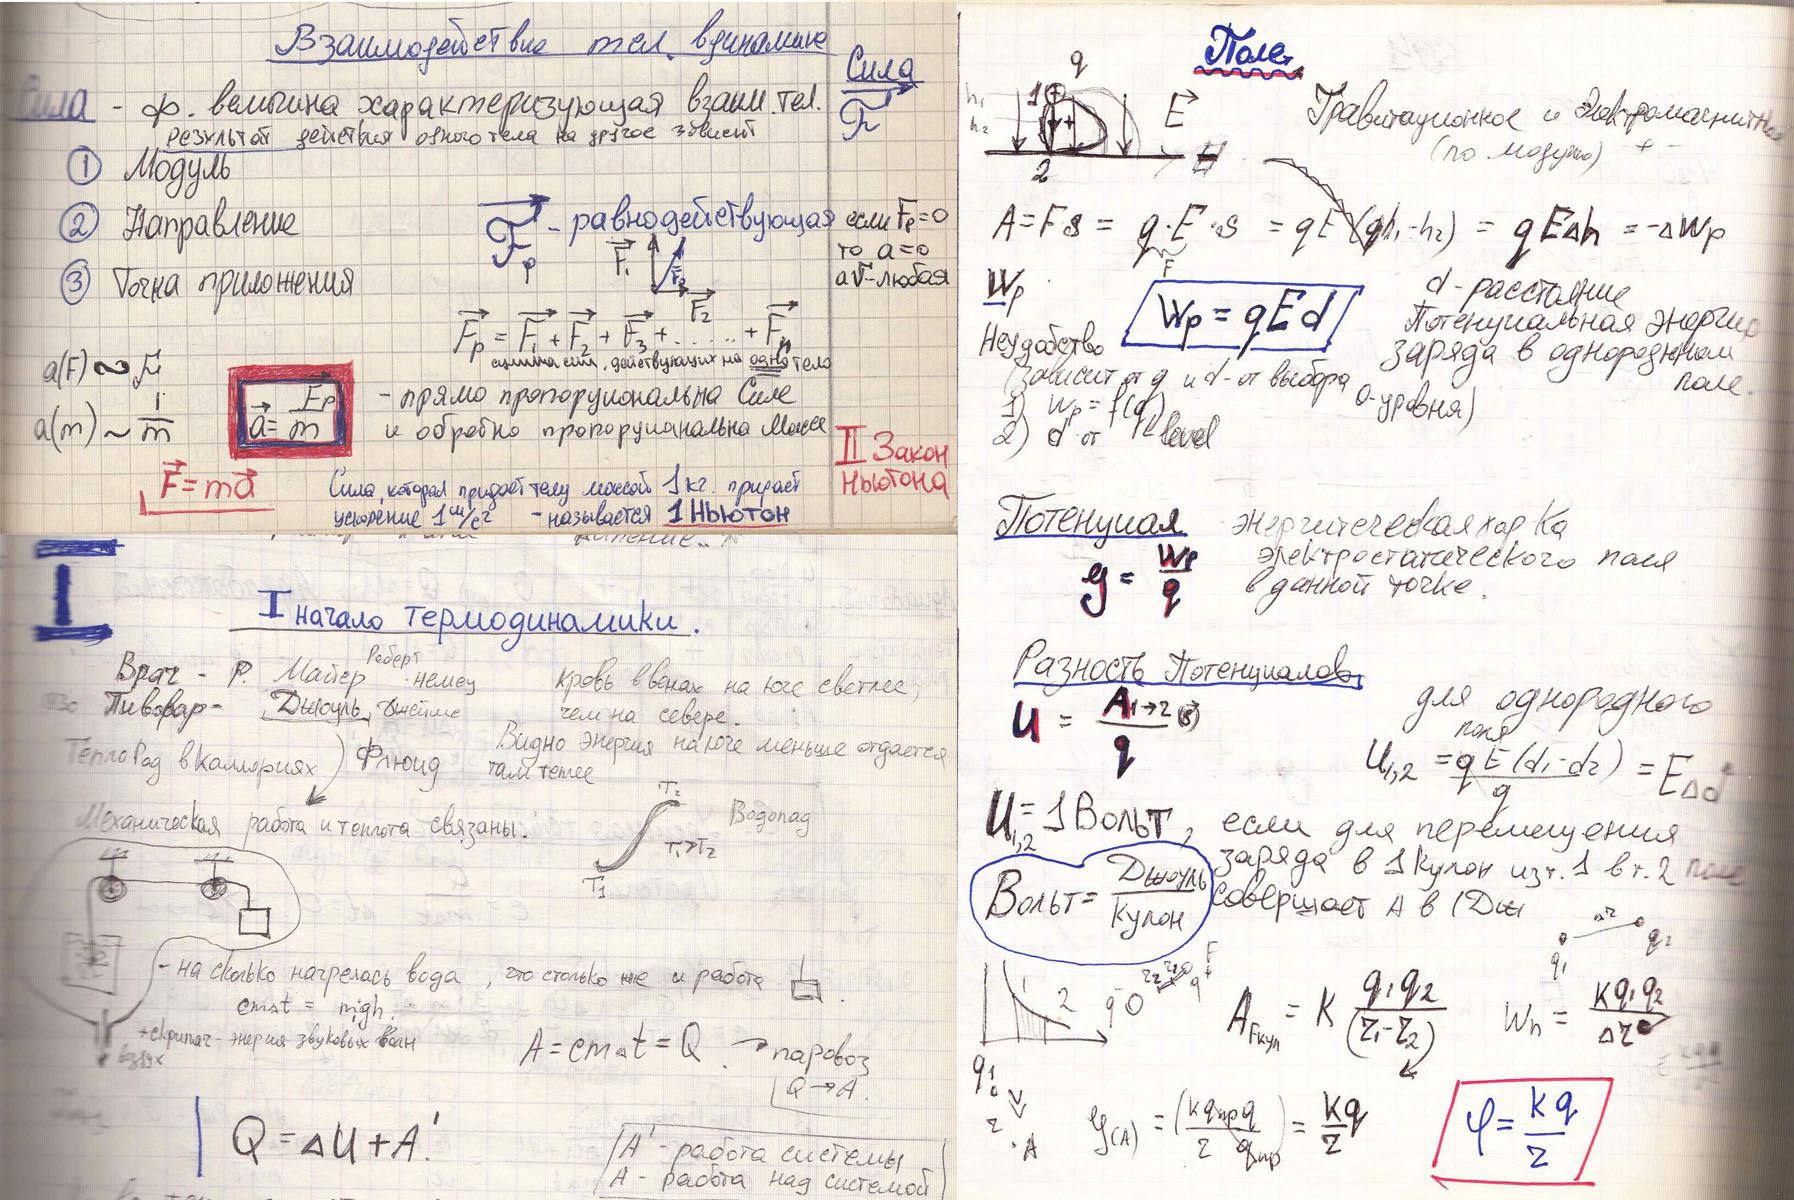 Взаимодействие тел. в динамике
Сила
Сила - ф. величина характеризующая взаим. тел.
F
результат действия одного тела на другое зависит
① Модуль
② Направление
③ Точка приложения
Fр - равнодействующая
F₁
F₂
если Fр=0
то a=0
а V-любая
Fр = F₁ + F₂ + F₃ + ...... + Fn
сумма сил, действующих на одно тело
a(F) ~ F
a(m) ~ 1/m
a = Fр/m
- прямо пропорциональна Силе
и обратно пропорциональна Массе
II Закон
Ньютона
F=ma
Сила, которая придаст телу массой 1 кг. придаст
ускорение 1 м/с² - называется 1 Ньютон
I
I начало термодинамики.
Врач - Р. Майер Роберт немец
Пивовар - Джоуль Джеймс
кровь в венах на юге светлее,
чем на севере.
Видно энергия на юге меньше отдается
там теплее
ТеплоРод в каллориях) Флюид
Механическая работа и теплота связаны.
T₂
Водопад
T₁>T₂
T₁
- на сколько нагрелась вода, что столько же и работа
cmΔt = mgh.
+скрипач - энергия звуковых волн
воздух
A = cmΔt = Q. → паровоз
Q → A
Q = ΔU + A'.
A' - работа системы
A - работа над системой
Поле
q
h₁
h₂
1
2
E
Гравитационное и Электромагнитное
(по модулю) + -
A = FS = q·E·s = qE(h₁-h₂) = qEΔh = -ΔWp
F
Wp
Wp = qEd
d - расстояние
Потенциальная энергия
заряда в однородном
поле.
Неудобство
(зависит от q и d - от выбора
0-уровня)
1) Wp = f(q)
2) d от level
Потенциал
энергитическая хар Ка
электростатического поля
в данной точке.
φ = Wp/q
Разность Потенциалов
U = A₁→₂/q
для однородного
поля
U₁,₂ = qE(d₁-d₂)/q = EΔd
U₁,₂ = 1 Вольт, если для перемещения
заряда в 1 Кулон из т. 1 в т. 2 поле
совершает А в 1 Дж
Вольт = Джоуль/Кулон
Δr
q₁
q₂
1
2
A Fкул = K q₁q₂/(r₁-r₂)
Wп = Kq₁q₂/Δr
q₁
r
A
φ(A) = (Kqпрq/r qпр) = Kq/r
φ = Kq/r